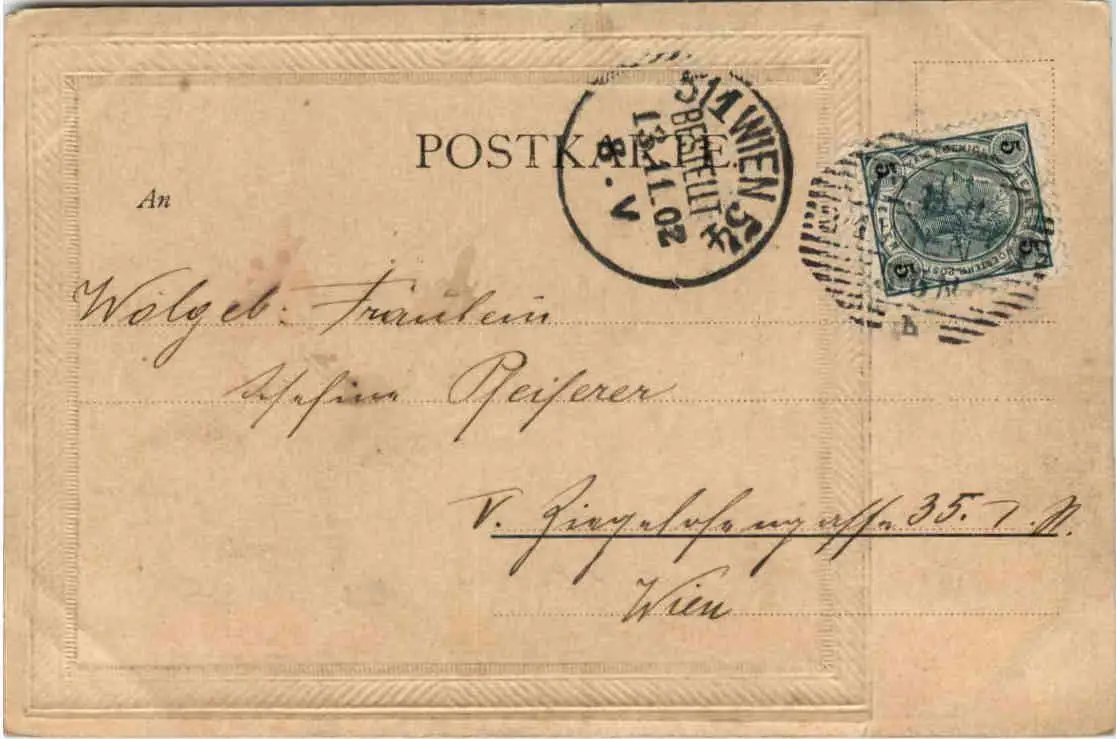 POSTKARTE
5/1 WIEN 54
BESTELLT
13.11.02
8.V
An
5 5
5 5
Wolgeb: Fräulein
Pfeiferer
V. Ziegelofengasse 35.
Wien